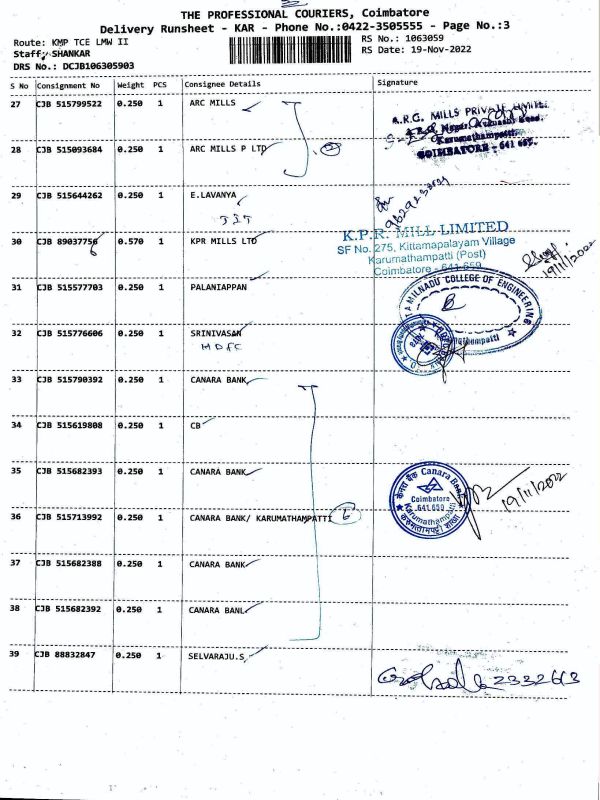 THE PROFESSIONAL COURIERS, Coimbatore
Delivery Runsheet - KAR - Phone No.:0422-3505555 - Page No.:3
Route: KMP TCE LMW II
RS No.: 1063059
Staff: SHANKAR
RS Date: 19-Nov-2022
DRS No.: DCJB106305903
S No Consignment No Weight PCS Consignee Details Signature
27 CJB 515799522 0.250 1 ARC MILLS
A.R.G. MILLS PRIVATE LIMITED
Karumathampatti,
COIMBATORE - 641 659.
28 CJB 515093684 0.250 1 ARC MILLS P LTD
29 CJB 515644262 0.250 1 E.LAVANYA
30 CJB 89037756 0.570 1 KPR MILLS LTD
K.P.R. MILL LIMITED
SF No. 275, Kittamapalayam Village
Karumathampatti (Post)
Coimbatore - 641 659
19/11/2022
31 CJB 515577703 0.250 1 PALANIAPPAN
TAMILNADU COLLEGE OF ENGINEERING
32 CJB 515776606 0.250 1 SRINIVASAN
HDFC
33 CJB 515790392 0.250 1 CANARA BANK
34 CJB 515619808 0.250 1 CB
35 CJB 515682393 0.250 1 CANARA BANK
केनरा बैंक Canara Bank
Coimbatore
641 659
Karumathampatti
19/11/2022
36 CJB 515713992 0.250 1 CANARA BANK/ KARUMATHAMPATTI 6
37 CJB 515682388 0.250 1 CANARA BANK
38 CJB 515682392 0.250 1 CANARA BANL
39 CJB 88832847 0.250 1 SELVARAJU.S